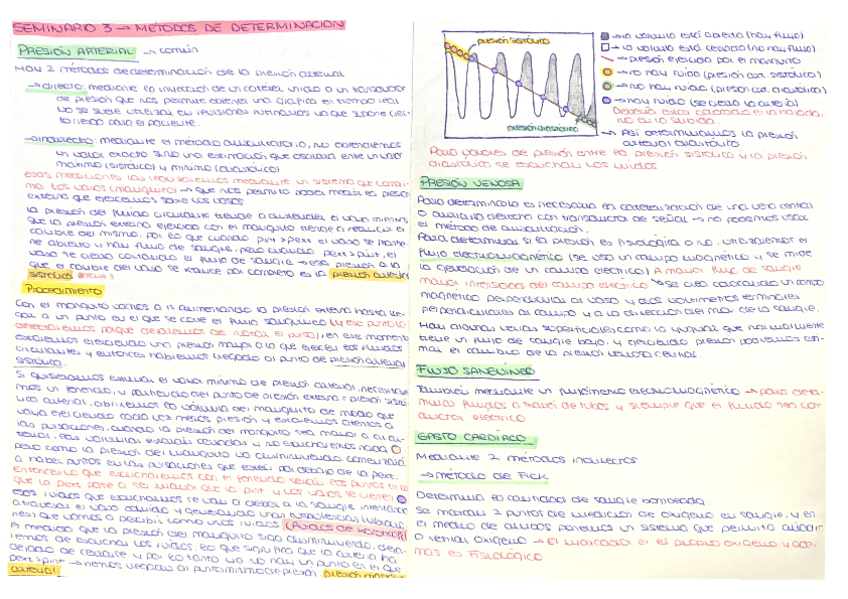 SEMINARIO 3 → MÉTODOS DE DETERMINACIÓN
PRESIÓN ARTERIAL → común
Hay 2 métodos de determinación de la presión arterial
→ directo: mediante la inyección de un catéter unido a un transductor
de presión que nos permite obtener una gráfica en tiempo real
No se suele utilizar en revisiones rutinarias ya que supone cier-
to riesgo para el paciente.
→ indirecto: mediante el método auscultatorio, no obtenemos
un valor exacto sino una estimación que oscilará entre un valor
máximo (sistólico) y mínimo (diastólico)
Estas mediciones las realizamos mediante un sistema que compri-
ma los vasos (manguito) → que nos permite poder medir la presión
externa que ejercemos sobre los vasos
la presión del fluido circulante tiende a
que la presión externa ejercida con el manguito tiende a reducir el
calibre del mismo, por lo que cuando pint > pext el vaso se mantie-
ne abierto y hay flujo de sangre, pero cuando pext > pint, el
vaso se cierra cortando el flujo de sangre → esa presión a la
que el calibre del vaso se reduce por completo es la presión arterial
sistólica
Procedimiento
Con el manguito vamos a ir aumentando la presión externa hasta lle-
gar a un punto en el que se corte el flujo sanguíneo (y ese punto lo
detectaremos porque dejaremos de notar el pulso), en ese momento
estaremos ejerciendo una presión mayor a la que ejerce el fluido
circulante y entonces habremos llegado al punto de presión arterial
sistólica.
Si quisiéramos estimar el valor mínimo de presión arterial, necesitaría-
mos un fonendo, y partiendo del punto de presión externa = presión sistó-
lica arterial, abriremos la válvula del manguito de modo que
vaya ejerciendo cada vez menos presión y estaremos atentos a
las pulsaciones, cuando la presión del manguito sea mayor a la ar-
terial, las válvulas estarán cerradas y no escucharemos nada
pero como la presión del manguito va disminuyendo comenzará
a haber puntos en las pulsaciones que estén por debajo de la pext.
Entonces lo que escucharemos con el fonendo serán los puntos en los
que la pext pasa a ser mayor que la pint y los vasos se cierren
esos ruidos que escuchamos se van a deber a la sangre intentando
atravesar el vaso ocluido y generando unas turbulencias
que vamos a percibir como unos ruidos (Ruidos de Korotkoff)
A medida que la presión del manguito siga disminuyendo, deja-
remos de escuchar los ruidos, lo que significa que la arteria ha
dejado de cerrarse y por lo tanto ya no hay un punto en el que
pext > pint → hemos llegado al punto mínimo de presión, presión diastólica
arterial
presión sistólica
presión diastólica
→ la válvula está abierta (hay flujo)
→ la válvula está cerrada (no hay flujo)
→ presión ejercida por el manguito
→ no hay ruido (presión art. sistólica)
→ no hay ruido (presión art. diastólica)
→ hay ruido (se cierra la arteria)
no en la subida.
→ Así determinamos la presión
arterial diastólica
Para valores de presión entre la presión sistólica y la presión
diastólica se escuchan los ruidos
PRESIÓN VENOSA
Para determinarla es necesaria la cateterización de una vena central
o aurícula derecha con transductor de señal → no podemos usar
el método de auscultación.
Para determinar si la presión es fisiológica o no, utilizaremos el
flujo electromagnético (se usa un campo magnético y se mide
la generación de un campo eléctrico) A mayor flujo de sangre
mayor intensidad del campo eléctrico → se usa colocando un campo
magnético perpendicular al vaso y dos voltímetros terminales
perpendiculares al campo y a la dirección del mar de la sangre.
Hay algunas venas superficiales como la yugular que normalmente
tiene un flujo de sangre bajo, y ejerciendo presión podremos esti-
mar el cambio de la presión venosa central.
FLUJO SANGUÍNEO
También mediante un flujómetro electromagnético → para deter-
minar fluidos a través de tubos y siempre que el fluido sea con-
ductor eléctrico
GASTO CARDÍACO
Mediante 2 métodos indirectos
→ método de Fick
Determina la cantidad de sangre bombeada.
Se marcan 2 puntos de medición de oxígeno en sangre, y en
el medio de ambos ponemos un sistema que permita añadir
o retirar oxígeno → El marcador es el propio oxígeno y ade-
más es fisiológico